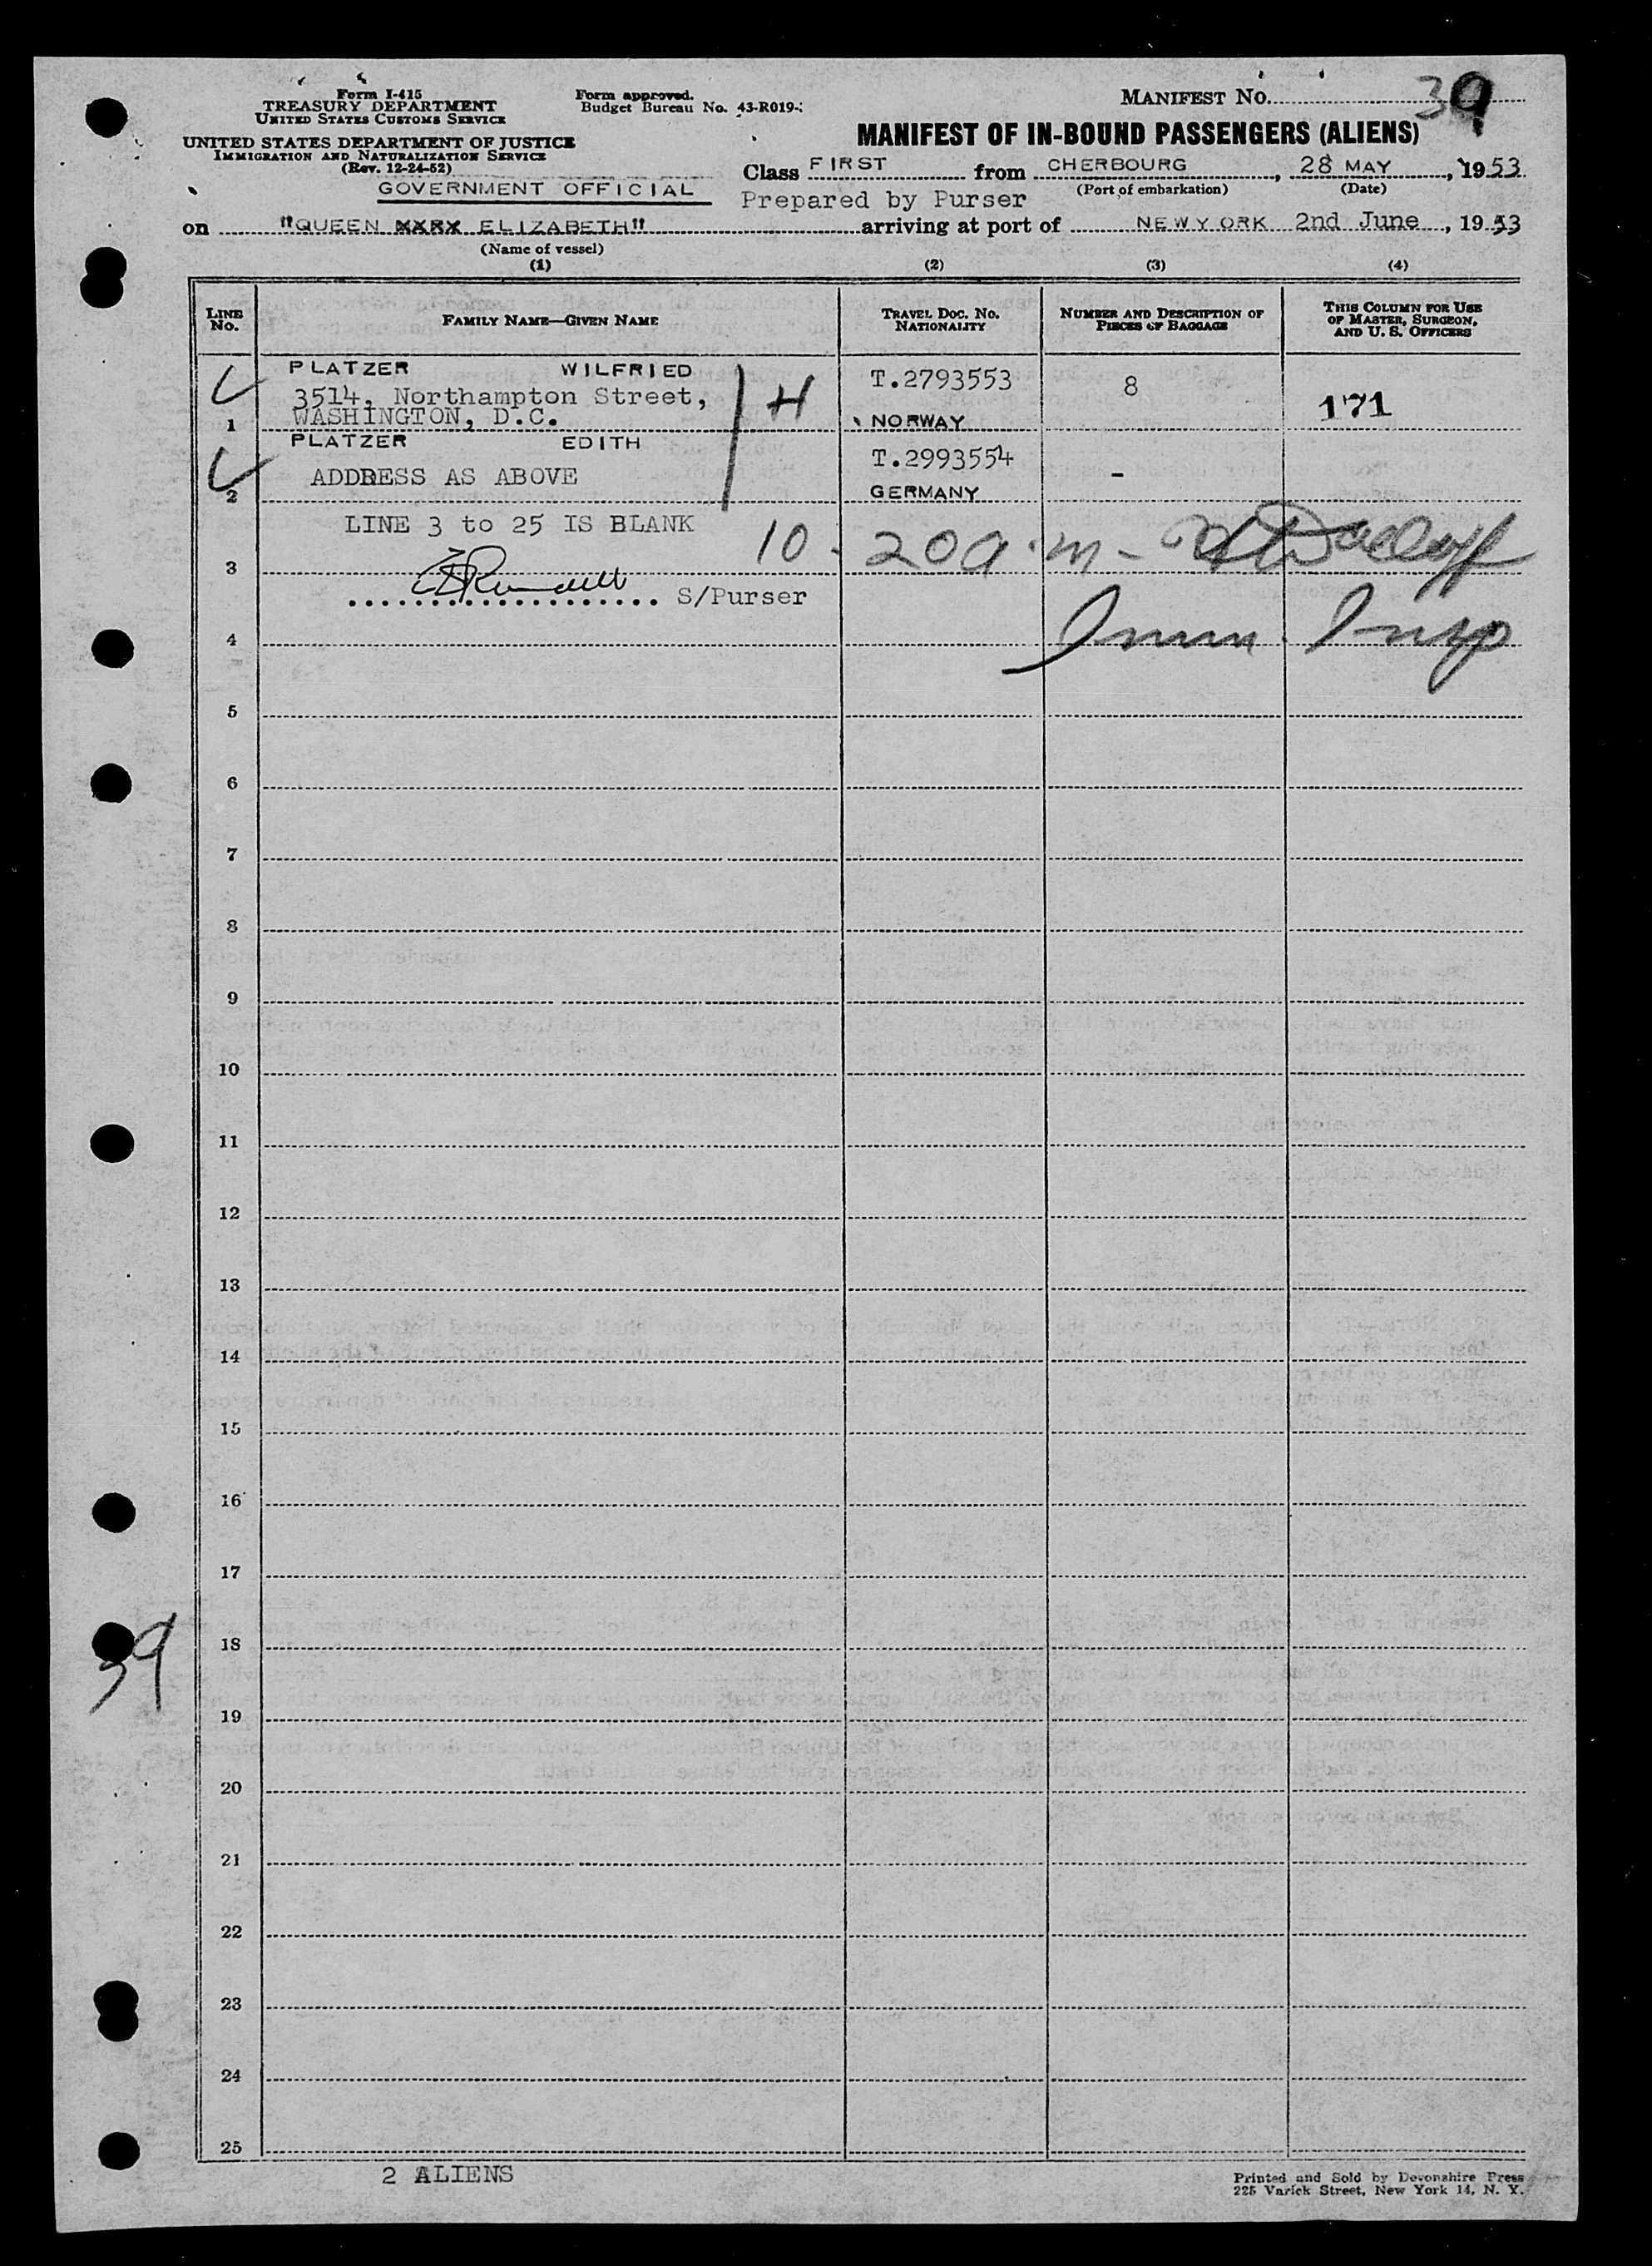 Form I-415
TREASURY DEPARTMENT
UNITED STATES CUSTOMS SERVICE
UNITED STATES DEPARTMENT OF JUSTICE
IMMIGRATION AND NATURALIZATION SERVICE
(Rev. 12-24-52)
GOVERNMENT OFFICIAL
Form approved.
Budget Bureau No. 43-R019-
MANIFEST No. 39
MANIFEST OF IN-BOUND PASSENGERS (ALIENS)
Class FIRST from CHERBOURG, 28 MAY, 1953
(Port of embarkation) (Date)
Prepared by Purser
on "QUEEN ELIZABETH" arriving at port of NEW YORK 2nd June, 1953
(Name of vessel)
(1) (2) (3) (4)
LINE No. FAMILY NAME—GIVEN NAME TRAVEL DOC. No. NATIONALITY NUMBER AND DESCRIPTION OF PIECES OF BAGGAGE THIS COLUMN FOR USE OF MASTER, SURGEON, AND U. S. OFFICERS
PLATZER WILFRIED T.2793553 8 171
3514, Northampton Street, H
1 WASHINGTON, D.C. NORWAY
PLATZER EDITH T.2993554 -
ADDRESS AS ABOVE
2 GERMANY
LINE 3 to 25 IS BLANK 10-20 a.m-
3
S/Purser
4 Imm. Insp
5
6
7
8
9
10
11
12
13
14
15
16
17
18
39
19
20
21
22
23
24
25
2 ALIENS
Printed and Sold by Devonshire Press
225 Varick Street, New York 14, N. Y.